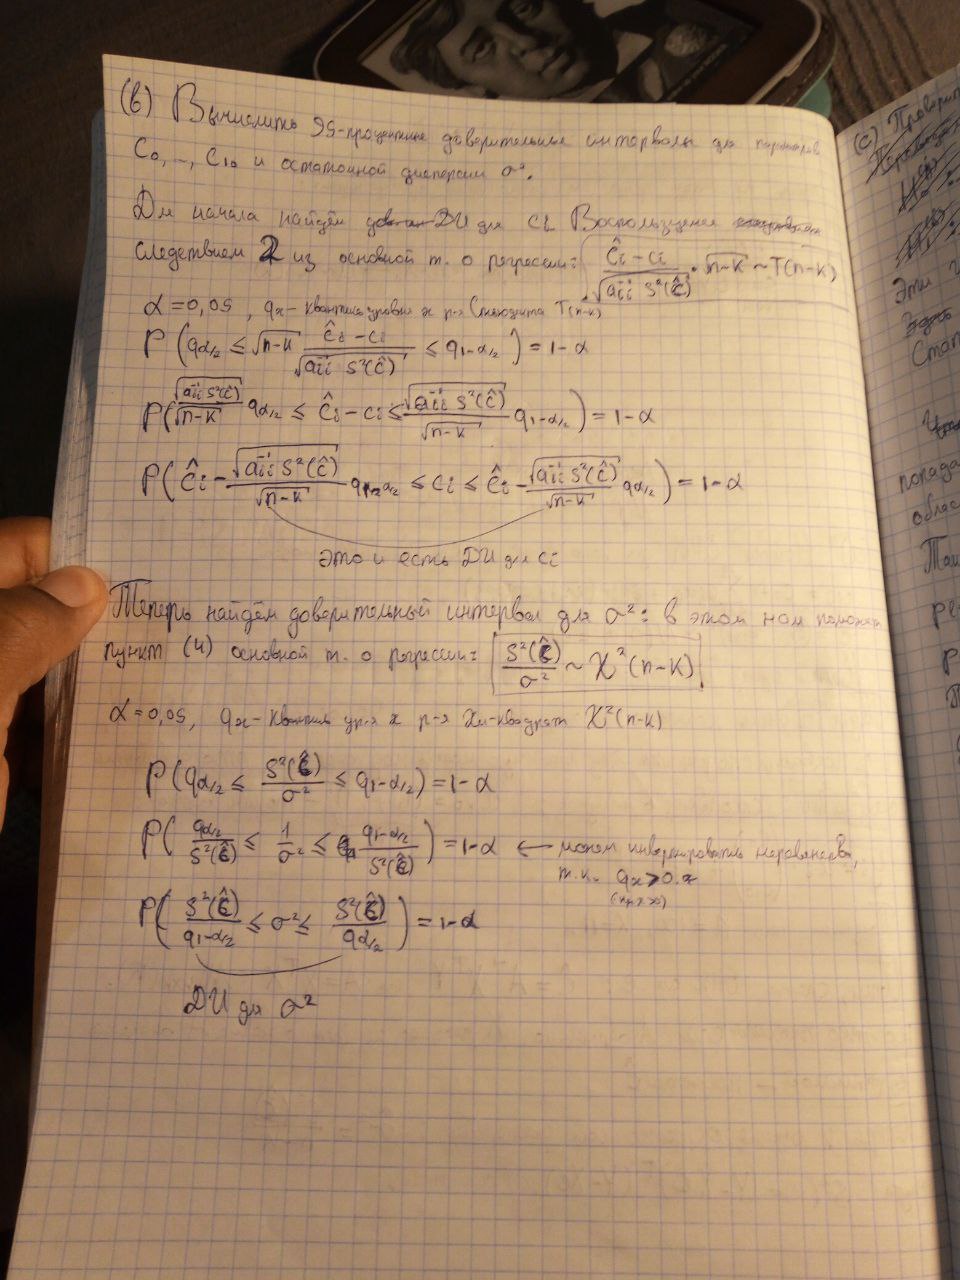 (b) Вычислить 95-процентные доверительные интервалы для параметров
C₀, ..., C₁₀ и остаточной дисперсии σ².
Для начала найдём ДИ для cᵢ. Воспользуемся
следствием 2 из основной т. о регрессии: (ĉᵢ - cᵢ)/√(aᵢᵢ S²(ĉ)) · √(n-k) ~ T(n-k)
α = 0,05, qₓ - квантиль уровня x р-я Стьюдента T(n-k)
P(q_{α/2} ≤ √(n-k) (ĉᵢ - cᵢ)/√(aᵢᵢ S²(ĉ)) ≤ q_{1-α/2}) = 1-α
P(√(aᵢᵢ S²(ĉ))/√(n-k) q_{α/2} ≤ ĉᵢ - cᵢ ≤ √(aᵢᵢ S²(ĉ))/√(n-k) q_{1-α/2}) = 1-α
P(ĉᵢ - √(aᵢᵢ S²(ĉ))/√(n-k) q_{1-α/2} ≤ cᵢ ≤ ĉᵢ - √(aᵢᵢ S²(ĉ))/√(n-k) q_{α/2}) = 1-α
это и есть ДИ для cᵢ
Теперь найдём доверительный интервал для σ²: в этом нам поможет
пункт (4) основной т. о регрессии: S²(ĉ)/σ² ~ χ²(n-k)
α = 0,05, qₓ - квантиль ур-я x р-я хи-квадрат χ²(n-k)
P(q_{α/2} ≤ S²(ĉ)/σ² ≤ q_{1-α/2}) = 1-α
P(q_{α/2}/S²(ĉ) ≤ 1/σ² ≤ q_{1-α/2}/S²(ĉ)) = 1-α ← можем инвертировать неравенства,
т.к. qₓ > 0.
P(S²(ĉ)/q_{1-α/2} ≤ σ² ≤ S²(ĉ)/q_{α/2}) = 1-α
ДИ для σ²
(c) Проверит
Эти
Стат
попада
облас
Так
ре